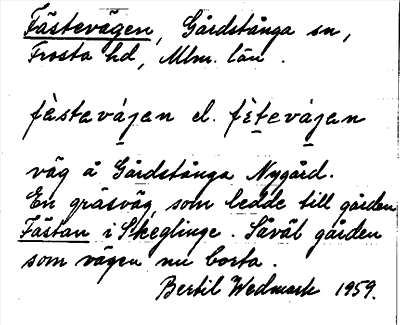 Fästevägen, Gårdstånga sn,
Frosta hd, Mlm. län.
fèstavájen el. fètevájan
väg å Gårdstånga Nygård.
En gräsväg, som ledde till gården
Fästan i Skeglinge. Såväl gården
som vägen nu borta.
Bertil Wedmark 1959.